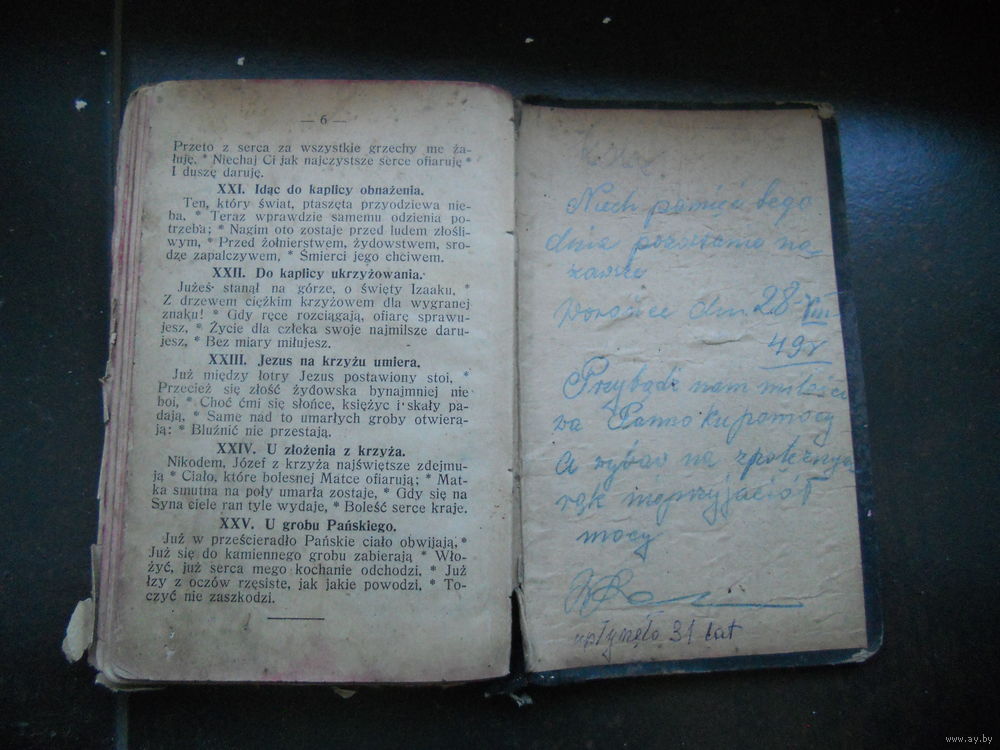 — 6 —
Przeto z serca za wszystkie grzechy me ża-
łuję, * Niechaj Ci jak najczystsze serce ofiaruję *
I duszę daruję.
XXI. Idąc do kaplicy obnażenia.
Ten, który świat, ptaszęta przyodziewa nie-
ba, * Teraz wprawdzie samemu odzienia po-
trzeba; * Nagim oto zostaje przed ludem złośli-
wym, * Przed żołnierstwem, żydowstwem, sro-
dze zapalczywem, * Śmierci jego chciwem.
XXII. Do kaplicy ukrzyżowania.
Jużeś stanął na górze, o święty Izaaku, *
Z drzewem ciężkim krzyżowem dla wygranej
znaku! * Gdy ręce rozciągają, ofiarę sprawu-
jesz, * Życie dla człeka swoje najmilsze daru-
jesz, * Bez miary miłujesz.
XXIII. Jezus na krzyżu umiera.
Już między łotry Jezus postawiony stoi, *
Przecież się złość żydowska bynajmniej nie
boi, * Choć ćmi się słońce, księżyc i skały pa-
dają, * Same nad to umarłych groby otwiera-
ją: * Bluźnić nie przestają.
XXIV. U złożenia z krzyża.
Nikodem, Józef z krzyża najświętsze zdejmu-
ją * Ciało, które bolesnej Matce ofiarują; * Mat-
ka smutna na poły umarła zostaje, * Gdy się na
Syna ciele ran tyle wydaje, * Boleść serce kraje.
XXV. U grobu Pańskiego.
Już w prześcieradło Pańskie ciało obwijają, *
Już się do kamiennego grobu zabierają * Wło-
żyć, już serca mego kochanie odchodzi, * Już
łzy z oczów rzęsiste, jak jakie powodzi, * To-
czyć nie zaszkodzi.
Niech pamięć tego
dnia pozostanie na
zawsze
dnia 28-VIII
49r
Przybądź nam miłości
wa Panno ku pomocy
A wybaw na z potężnych
rąk nieprzyjaciół
mocy
upłynęło 31 lat
www.ay.by